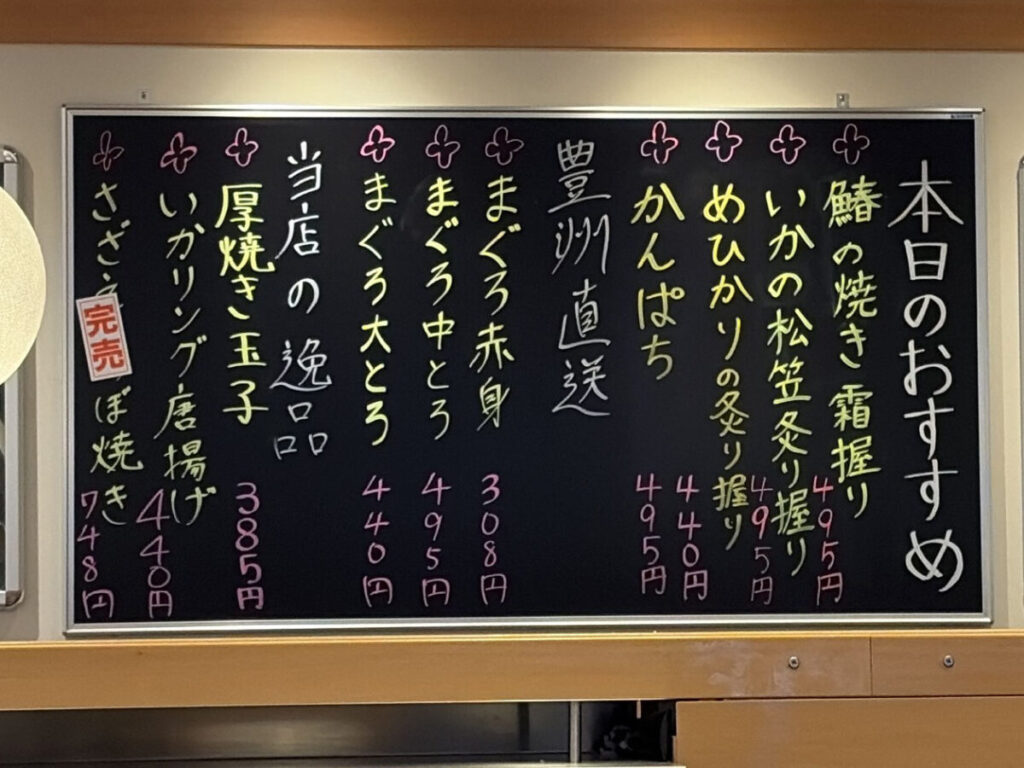 本日のおすすめ
鰆の焼き霜握り
495円
いかの松笠炙り握り
495円
めひかりの炙り握り
440円
かんぱち
495円
豊洲直送
まぐろ赤身
308円
まぐろ中とろ
495円
まぐろ大とろ
440円
当店の逸品
厚焼き玉子
385円
いかリング唐揚げ
440円
さざえ
完売
ぼ焼き
748円